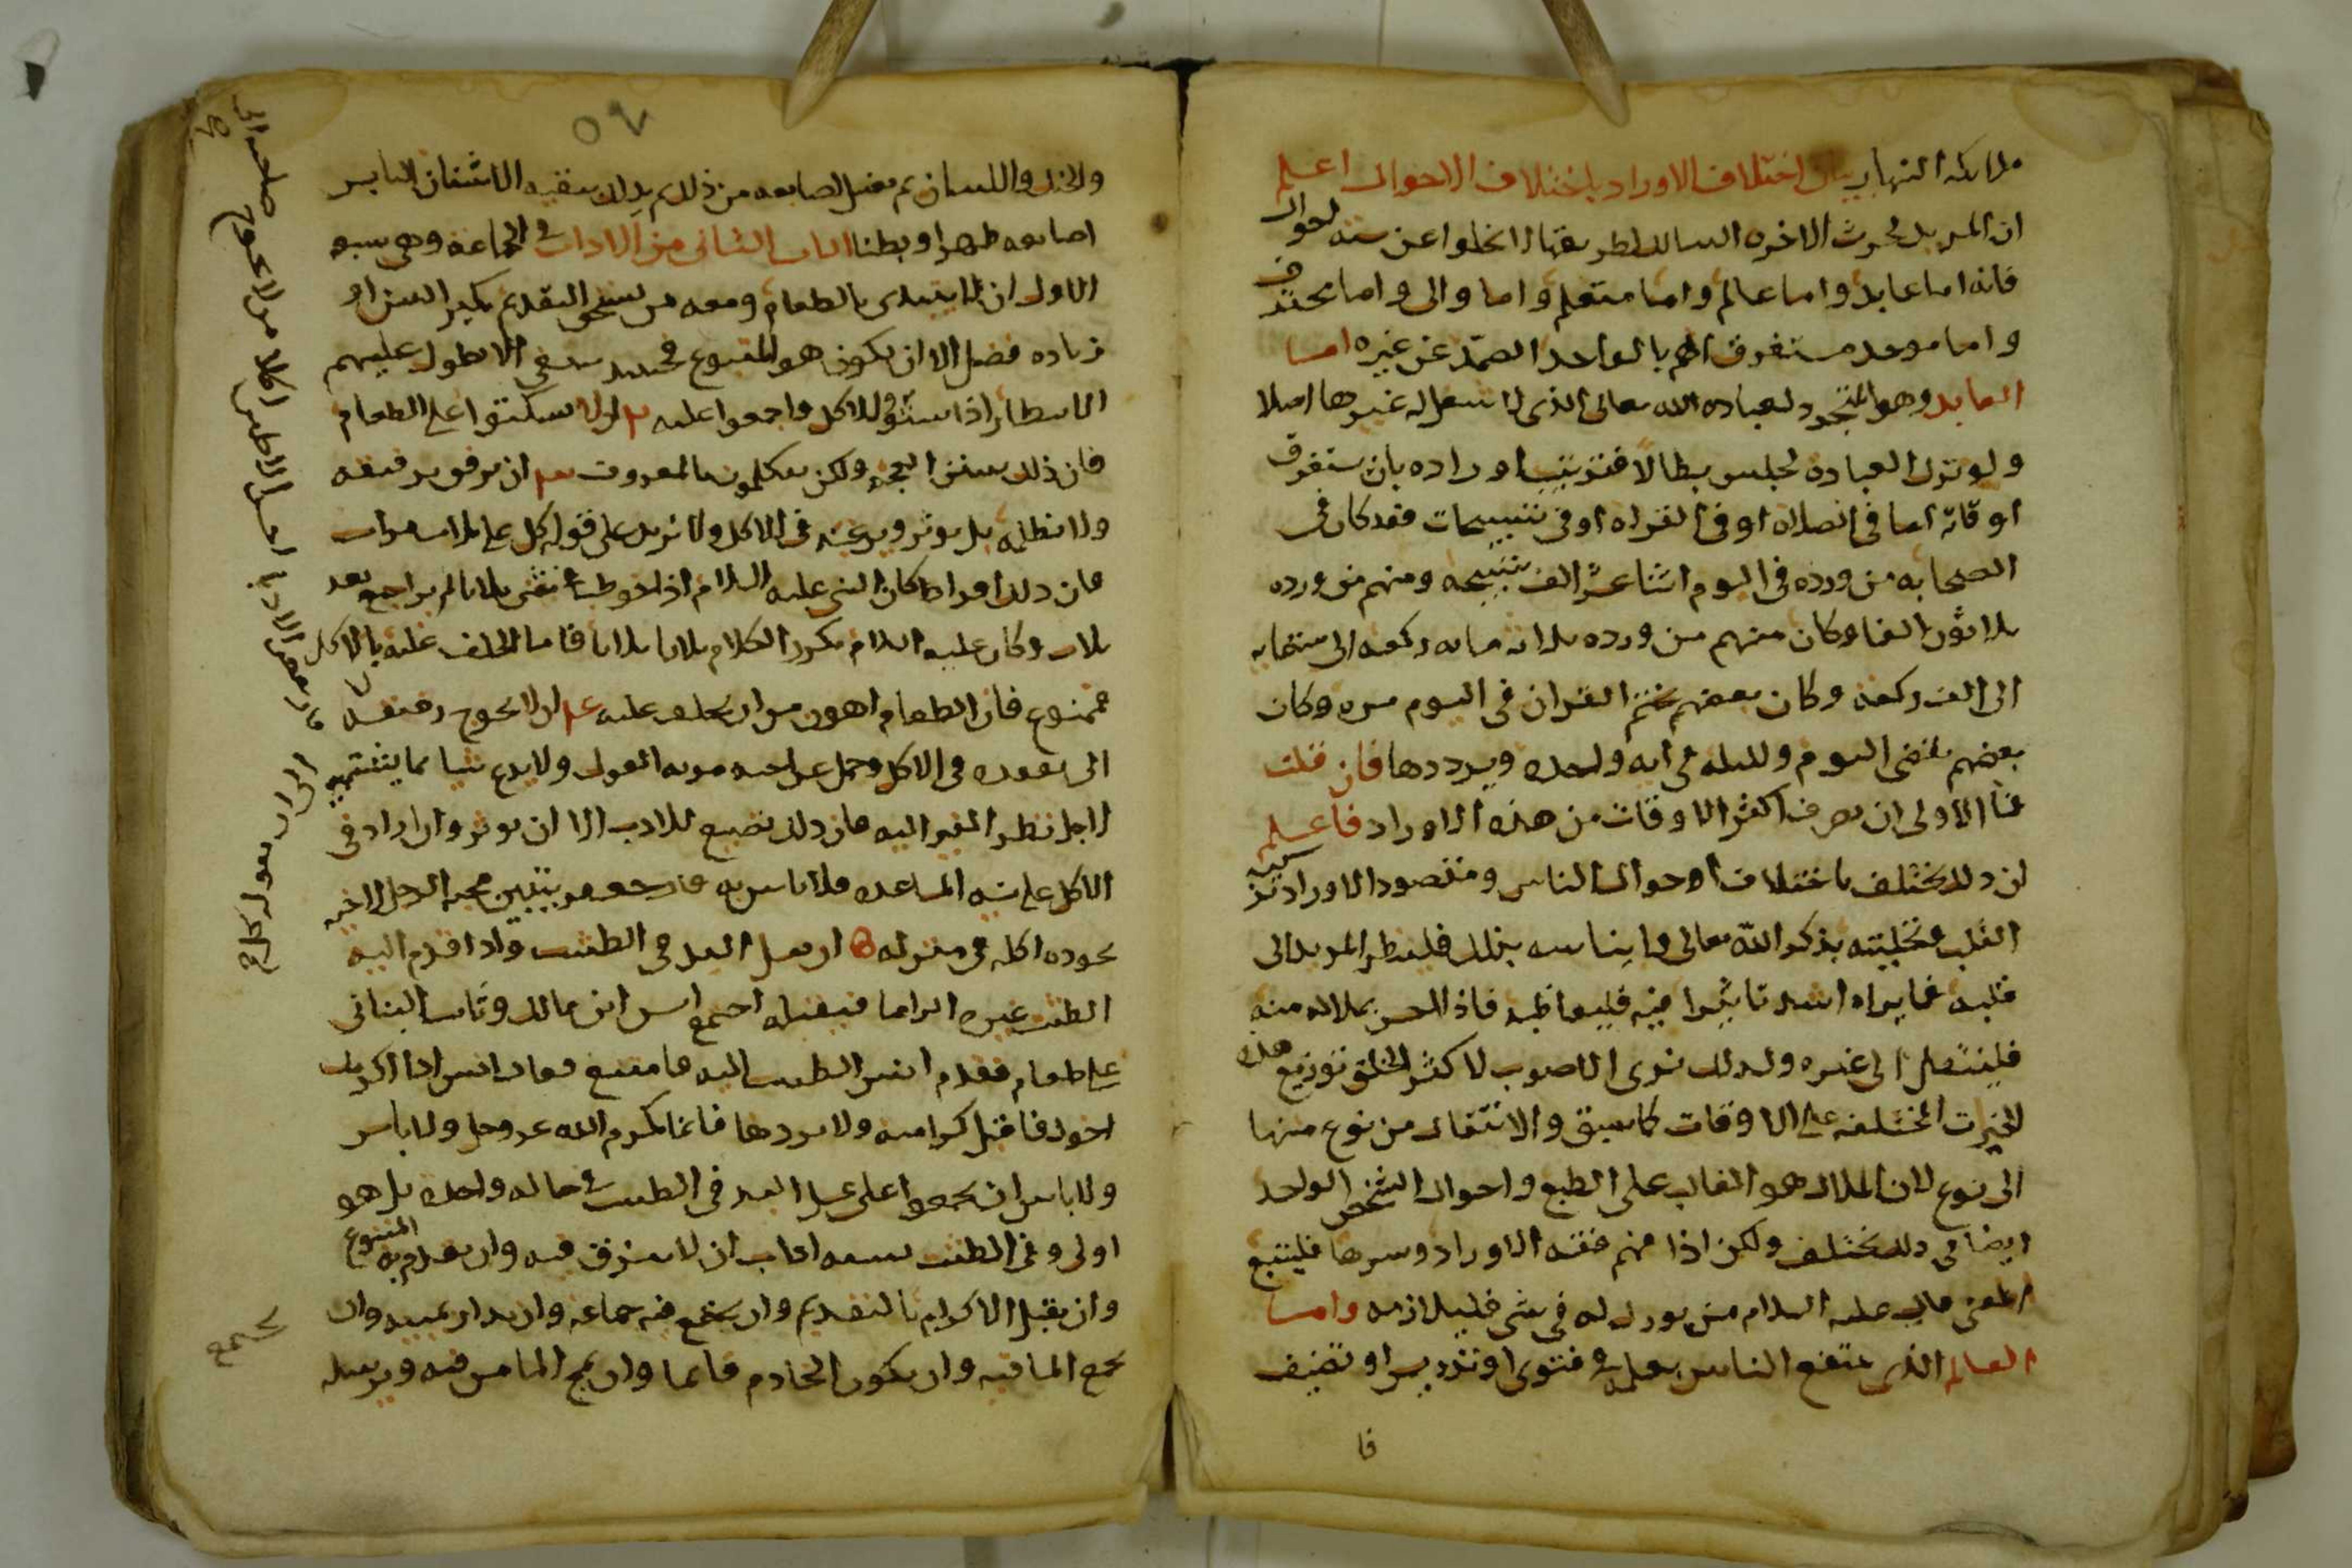 ملائكه النهار بيان اختلاف الاوراد باختلاف الاحوال اعلم
ان المريد لحرث الاخره السالك لطريقها لا يخلوا عن سته احوال
فانه اما عابد واما عالم واما متعلم واما والى واما محترف
واما موحد مستغرق الهم بالواحد الصمد عن غيره اما
العابد وهو المتجرد لعباده الله تعالى الذى لا شغل له غيرها اصلا
ولو ترك العباده لجلس بطالا فترتيب اوراده بان يستغرق
اوقاته اما فى الصلاه او فى القراه او فى تسبيحات فقد كان فى
الصحابه من ورده فى اليوم اثنا عشر الف تسبيحه ومنهم من ورده
ثلاثون الفا وكان منهم من ورده ثلاثه مايه ركعه الى ستمايه
الى الف ركعه وكان بعضهم يختم القران فى اليوم مره وكان
بعضهم يقضى اليوم والليله فى ايه واحده ويرددها فان قلت
فما الاولى ان يصرف اكثر الاوقات من هذه الاوراد فاعلم
ان ذلك يختلف باختلاف احوال الناس ومقصود الاوراد تزكيه
القلب وتحليته بذكر الله تعالى وايناسه بذلك فلينظر المريد الى
قلبه فما يراه اشد تاثيرا فيه فليواظبه فاذا احس بملاله منه
فلينتقل الى غيره ولذلك نرى الاصوب لاكثر الخلق توزيع هذه
الخيرات المختلفه على الاوقات كما سبق والانتقال من نوع منها
الى نوع لان الملال هو الغالب على الطبع واحوال الشخص الواحد
ايضا فى ذلك تختلف ولكن اذا فهم فقه الاوراد وسرها فليتبع
المعنى قال عليه السلام من بورك له فى شى فليلازمه واما
العالم الذى ينتفع الناس بعلمه فى فتوى او تدريس او تصنيف
فا
٥٢
والحنك واللسان ثم يغسل اصابعه من ذلك ثم يدلك ببقيه الاشنان اليابس
اصابعه ظهرا وبطنا الباب الثانى من الادات فى الجماعه وهى سبعه
الاول ان لا يبتدى بالطعام ومعه من يستحق التقديم بكبر السن او
زياده فضل الا ان يكون هو المتبوع فحينيذ ينبغى الا يطول عليهم
الانتظار اذا استوفوا للاكل واجمعوا عليه ان لا يسكتوا على الطعام
فان ذلك سنن العجم ولكن يتكلمون بالمعروف ان يرفق برفيقه
ولا يظلمه بل يوثر ويرغبه فى الاكل ولا يزيد على قوله كل على ثلاث مرات
فان ذلك افراط كان النبى عليه السلام اذا خوطب فى شى ثلاثا لم يراجع بعد
ثلاث وكان عليه السلام يكرر الكلام ثلاثا ثلاثا فاما الحلف عليه بالاكل
فممنوع فان الطعام اهون من ان يحلف عليه ان لا يحوج رفيقه
الى تفقده فى الاكل وحمل عن اخيه مونه القول ولا يدع شيا مما يشتهيه
لاجل نظر الغير اليه فان ذلك تضييع للادب الا ان يوثر وان زاد فى
الاكل على نيه المساعده فلا باس به قال جعفر يتبين محبه الرجل لاخيه
بجوده اكله فى منزله ان يغسل اليد فى الطشت واذا قدم اليه
الطشت غيره اكراما فيقبله اجتمع انس ابن مالك وثابت البنانى
على طعام فقدم انس الطشت اليه فامتنع فقال انس اذا اكرمك
اخوك فاقبل كرامته ولا تردها فانما يكرم الله عز وجل ولا باس
ولا باس ان يجتمعوا على غسل اليد فى الطشت فى حاله واحده بل هو
اولى وفى الطشت سبعه اداب ان لا يبزق فيه وان يقدم به المتبوع
وان يقبل الاكرام بالتقديم وان يجتمع فيه جماعه وان يدار يمينه وان
يجمع الما فيه وان يكون الخادم قائما وان يمج الما من فيه ويرسله
قال بعض الادبا احسن الاكلين اكلا من لا يحوج صاحبه الى
الى ان يقول كل
يجتمع